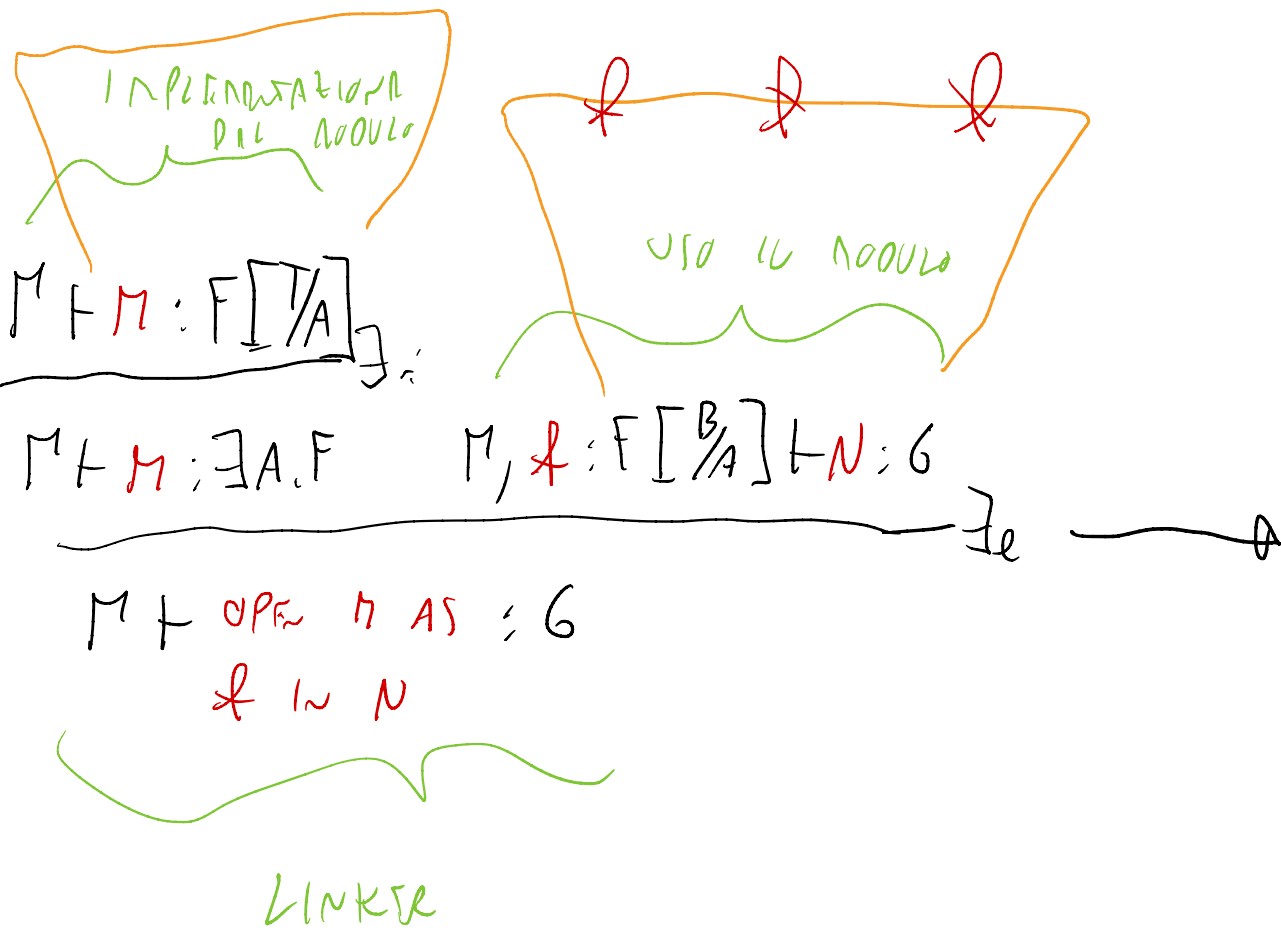 IMPLEMENTAZIONE
DEL MODULO
x x x
USO IL MODULO
Γ ⊢ M : F[T/A]
∃i
Γ ⊢ M : ∃A.F Γ, x : F[B/A] ⊢ N : G
∃e
Γ ⊢ OPEN M AS : G
x IN N
LINKER